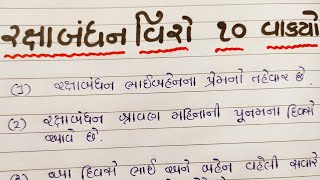 રક્ષાબંધન વિશે ૧૦ વાક્યો
(1) રક્ષાબંધન ભાઈબહેનના પ્રેમનો તહેવાર છે.
(2) રક્ષાબંધન શ્રાવણ મહિનાની પૂનમના દિવસે
આવે છે.
આ દિવસે ભાઈ અને બહેન વહેલી સવારે